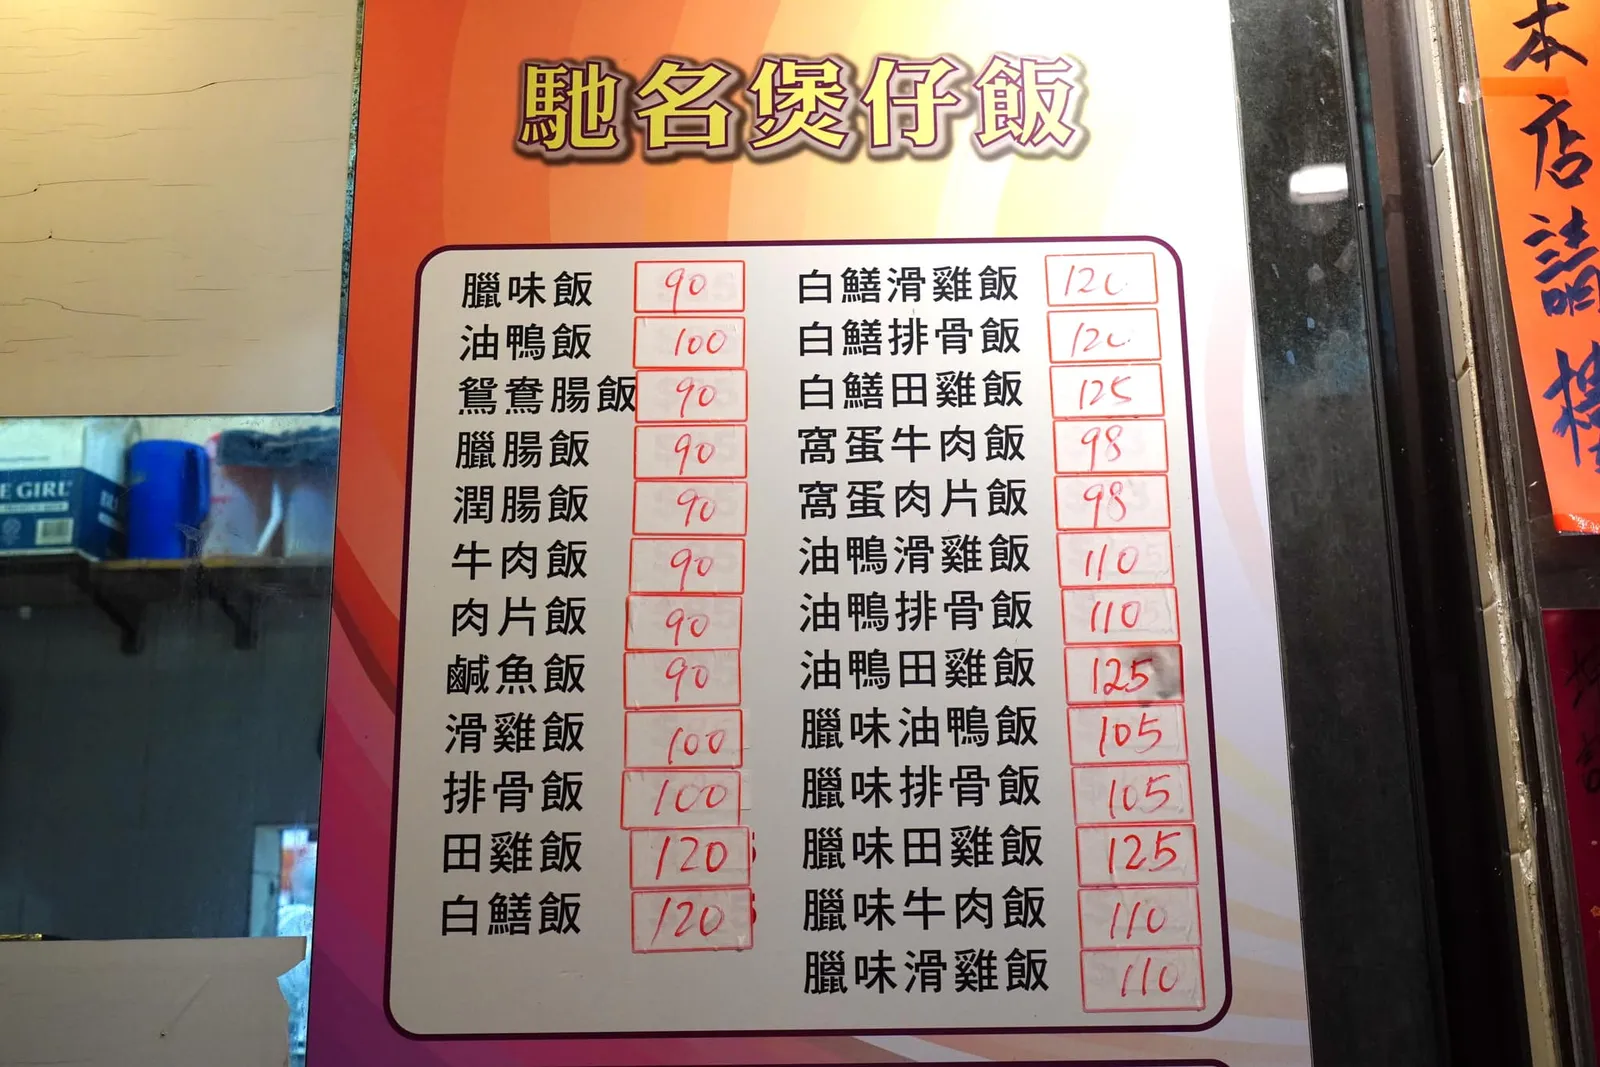 馳名煲仔飯
臘味飯 90
油鴨飯 100
鴛鴦腸飯 90
臘腸飯 90
潤腸飯 90
牛肉飯 90
肉片飯 90
鹹魚飯 90
滑雞飯 100
排骨飯 100
田雞飯 120
白鱔飯 120
白鱔滑雞飯 120
白鱔排骨飯 120
白鱔田雞飯 125
窩蛋牛肉飯 98
窩蛋肉片飯 98
油鴨滑雞飯 110
油鴨排骨飯 110
油鴨田雞飯 125
臘味油鴨飯 105
臘味排骨飯 105
臘味田雞飯 125
臘味牛肉飯 110
臘味滑雞飯 110
本店請
E GIRL